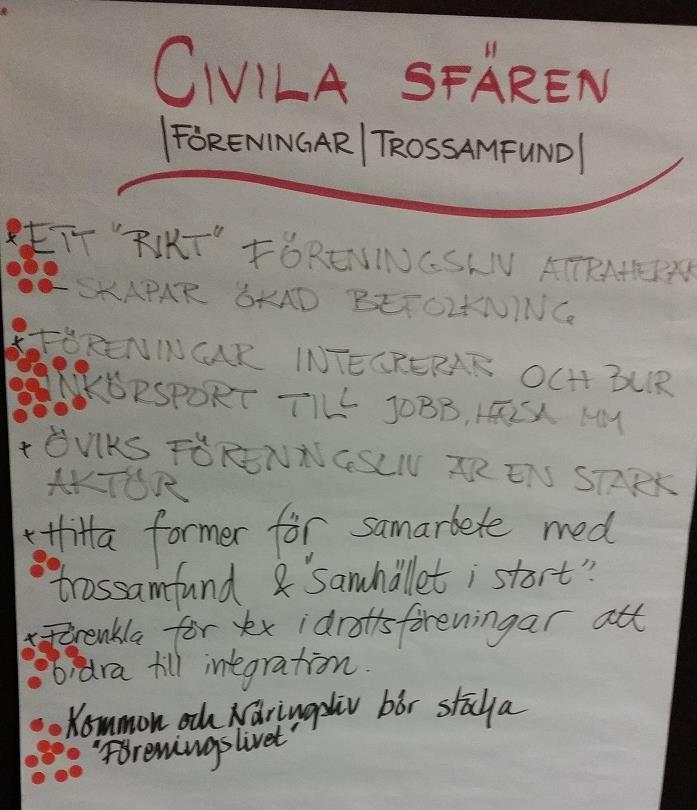 CIVILA SFÄREN
|FÖRENINGAR|TROSSAMFUND|
* ETT "RIKT" FÖRENINGSLIV ATTRAHERAR
- SKAPAR ÖKAD BEFOLKNING
* FÖRENINGAR INTEGRERAR OCH BLIR
INKÖRSPORT TILL JOBB, HÄLSA MM
* ÖVIKS FÖRENINGSLIV ÄR EN STARK
AKTÖR
* Hitta former för samarbete med
trossamfund & "samhället i stort".
* Förenkla för tex idrottsföreningar att
bidra till integration.
Kommon och Näringsliv bör stötta
"Föreningslivet"